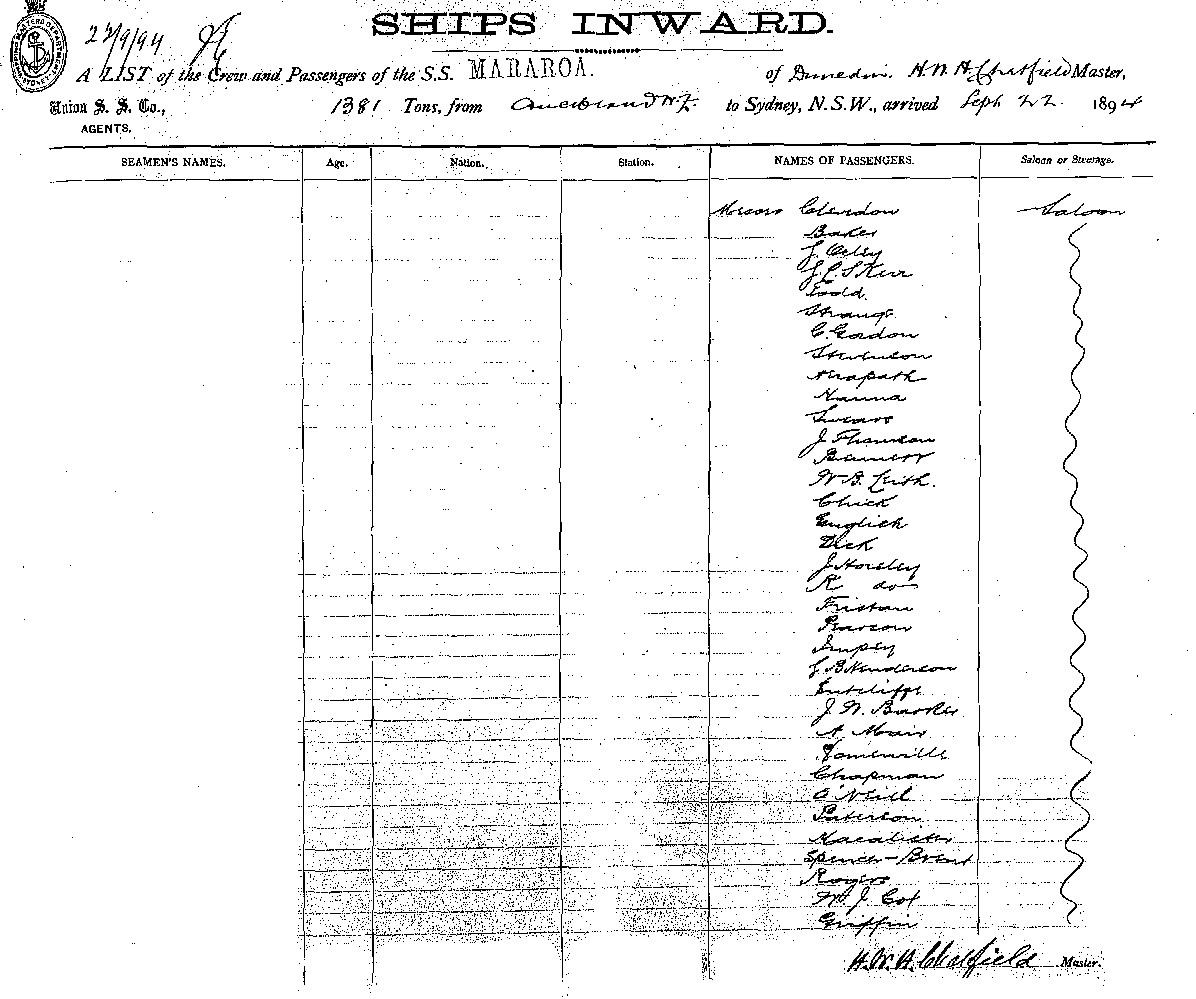 SHIPS INWARD.
22/9/94
A LIST of the Crew and Passengers of the S.S. MARAROA. of Dunedin. H.W.H. Chatfield Master,
Union S. S. Co., 1381 Tons, from Auckland N.Z. to Sydney, N.S.W., arrived Sept 22 1894
AGENTS.
SEAMEN'S NAMES. Age. Nation. Station. NAMES OF PASSENGERS. Saloon or Steerage.
Messrs Clendon Saloon
Baker
J.
Kerr
Todd.
Strange
C. Gordon
Stevenson
Herapath
Hanna
J.
Bennett
W. B. Leith.
Chick
English
Dick
J Horsley
R do
Tristan
Pearson
Impey
J B Henderson
Sutcliffe
J. W. Barker
A. Moir
Somerville
Chapman
O'Neill
Paterson
Macalister
Spencer-Brent
Rogers
W J Cox
Griffin
H.W.H. Chatfield Master.